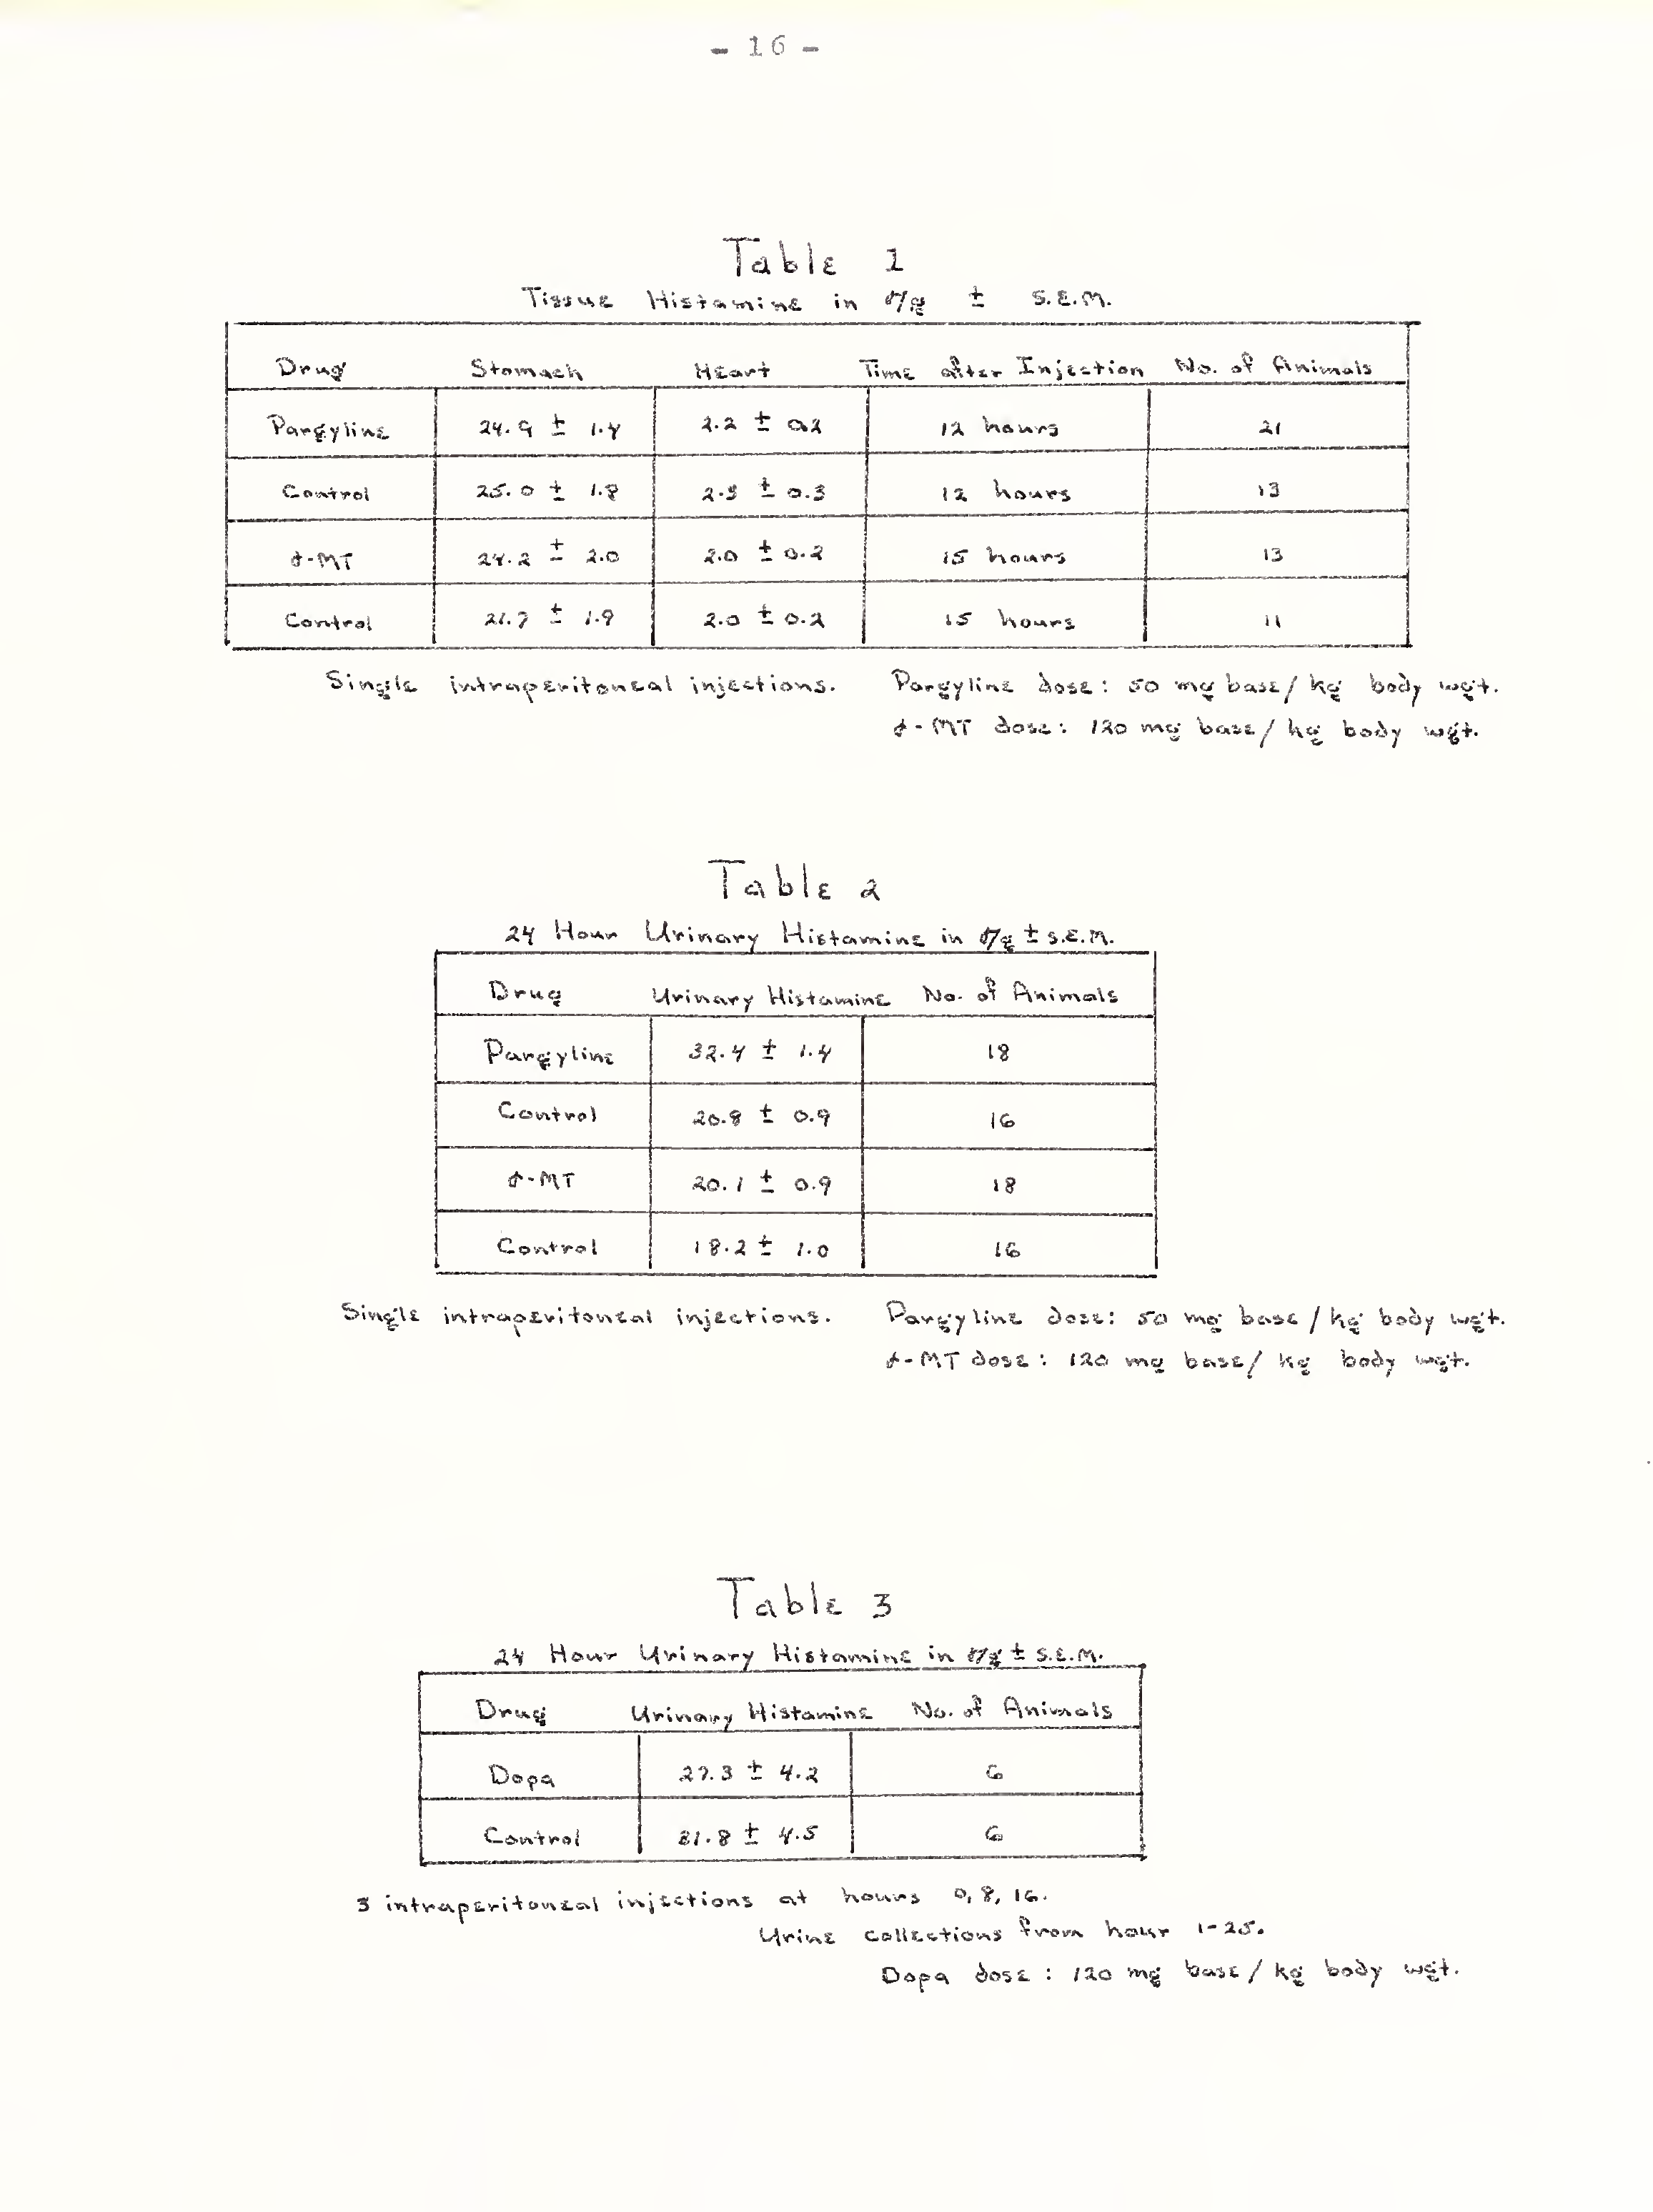 - 16 -
Table 1
Tissue Histamine in γ/g ± S.E.M.
Drug Stomach Heart Time after Injection No. of Animals
Pargyline 24.9 ± 1.4 2.2 ± 0.2 12 hours 21
Control 25.0 ± 1.8 ± 0.3 12 hours 13
α-MT 24.2 ± 2.0 2.0 ± 0.2 15 hours 13
Control 21.7 ± 1.9 2.0 ± 0.2 15 hours 11
Single intraperitoneal injections. Pargyline dose: 50 mg base/ kg body wgt.
α-MT dose: 120 mg base/ kg body wgt.
Table 2
24 Hour Urinary Histamine in γ/g ± S.E.M.
Drug Urinary Histamine No. of Animals
Pargyline 32.4 ± 1.4 18
Control 20.8 ± 0.9 16
α-MT 20.1 ± 0.9 18
Control 18.2 ± 1.0 16
Single intraperitoneal injections. Pargyline dose: 50 mg base / kg body wgt.
α-MT dose: 120 mg base/ kg body wgt.
Table 3
24 Hour Urinary Histamine in γ/g ± S.E.M.
Drug Urinary Histamine No. of Animals
Dopa 27.3 ± 4.2 6
Control ± 4.5 6
3 intraperitoneal injections at hours 0, 8, 16.
Urine collections from hour 1-25.
Dopa dose: 120 mg base/ kg body wgt.